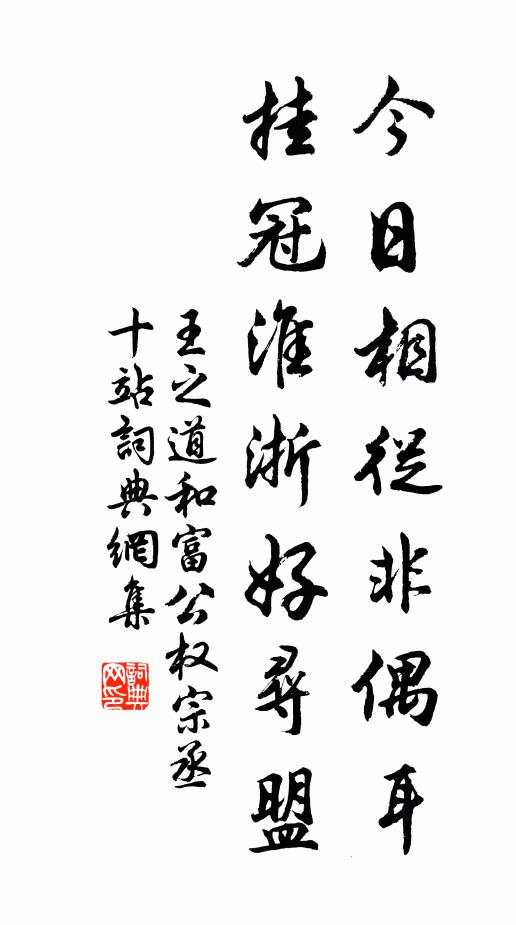 今日相從非偶耳
挂冠淮浙好尋盟
王之道和富公权宗丞
十站詞典網集
詞典网印